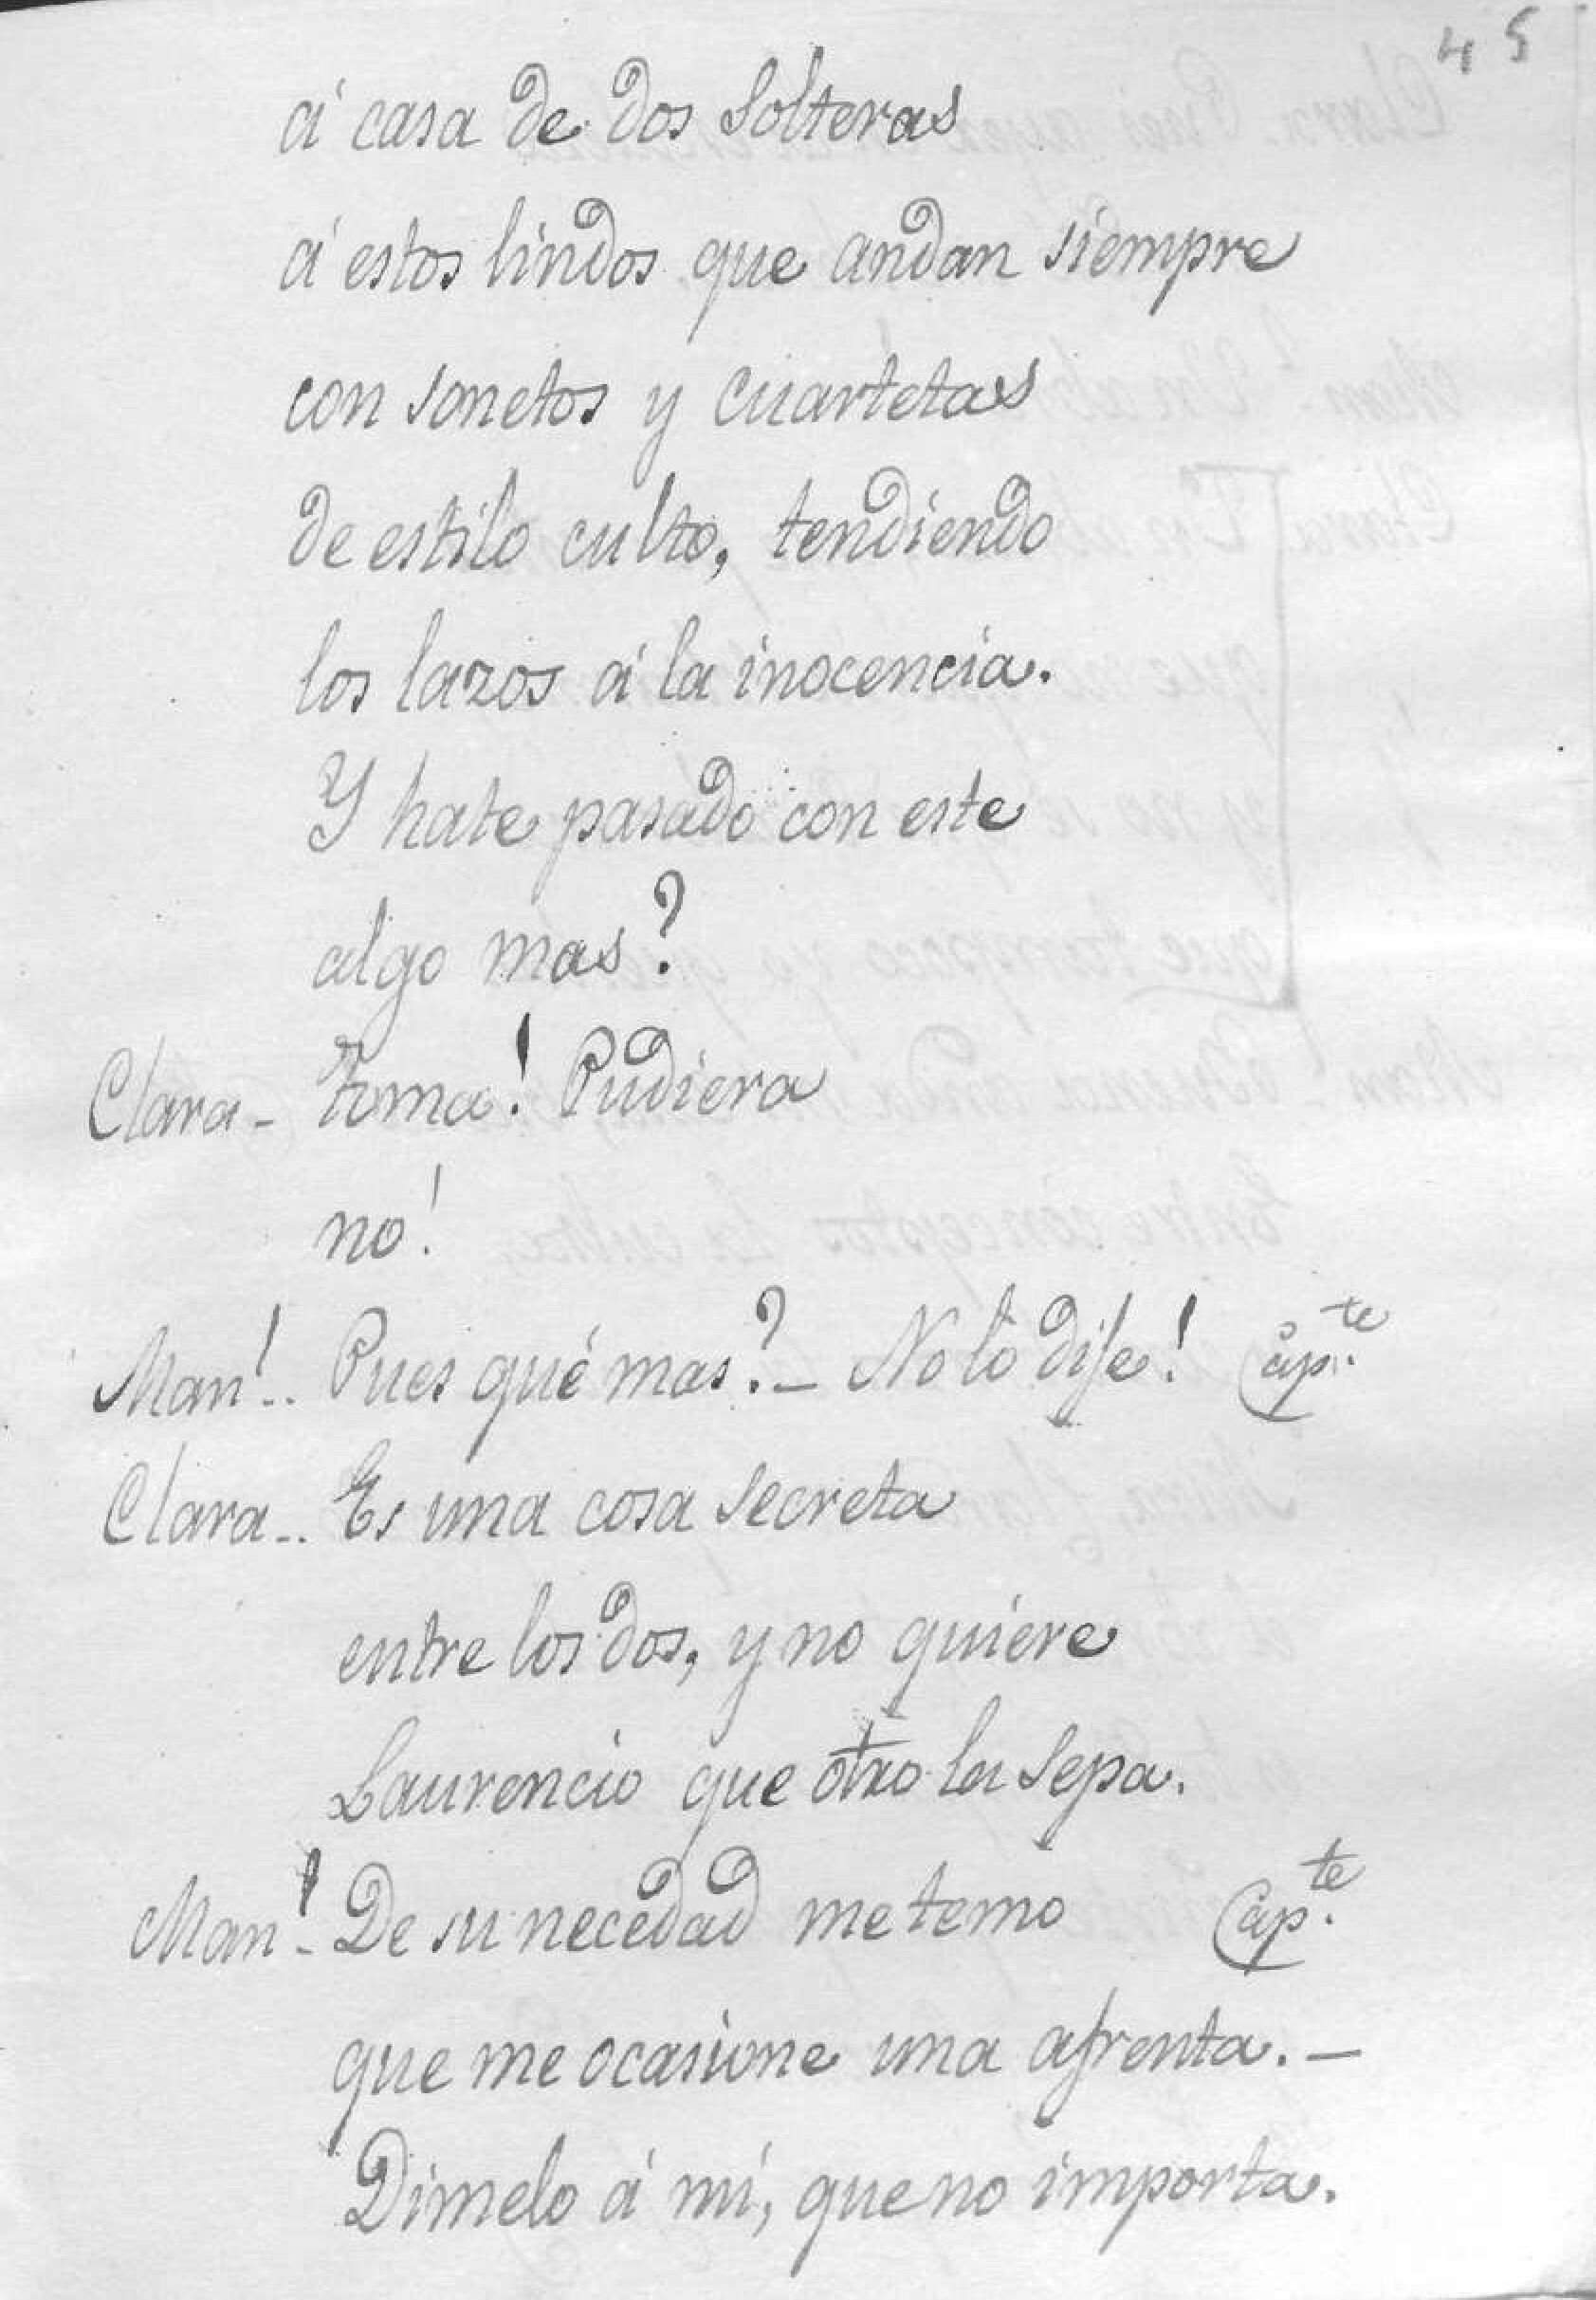 45
á casa de dos solteras
á estos lindos que andan siempre
con sonetos y cuartetas
de estilo culto, tendiendo
los lazos á la inocencia.
Y hate pasado con este
algo mas?
Clara - toma! Pudiera
no!
Man! - Pues qué mas? - No lo dije! (ap.te
Clara - Es una cosa secreta
entre los dos, y no quiere
Laurencio que otro la sepa.
Man! - De su necedad me temo (ap.te
que me ocasione una afrenta. -
Dimelo á mí, que no importa.